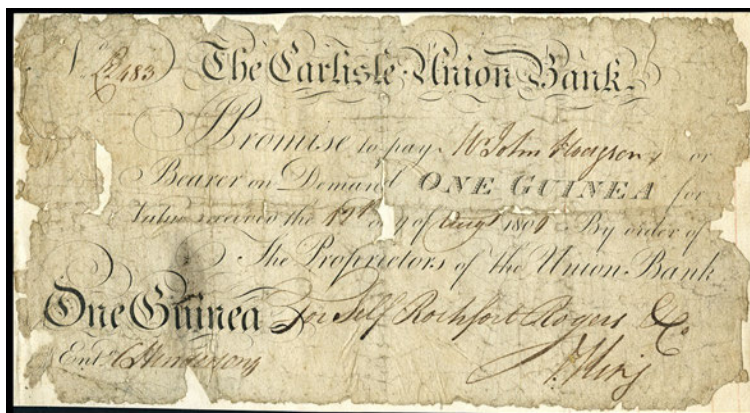 No 483 The Carlisle Union Bank.
I Promise to pay Mr John Hodgson or
Bearer on Demand ONE GUINEA for
Value received the 12th day of Augt 1809 By order of
The Proprietors of the Union Bank
One Guinea For Self Rochfort Rogers & Co
Entd Henderson